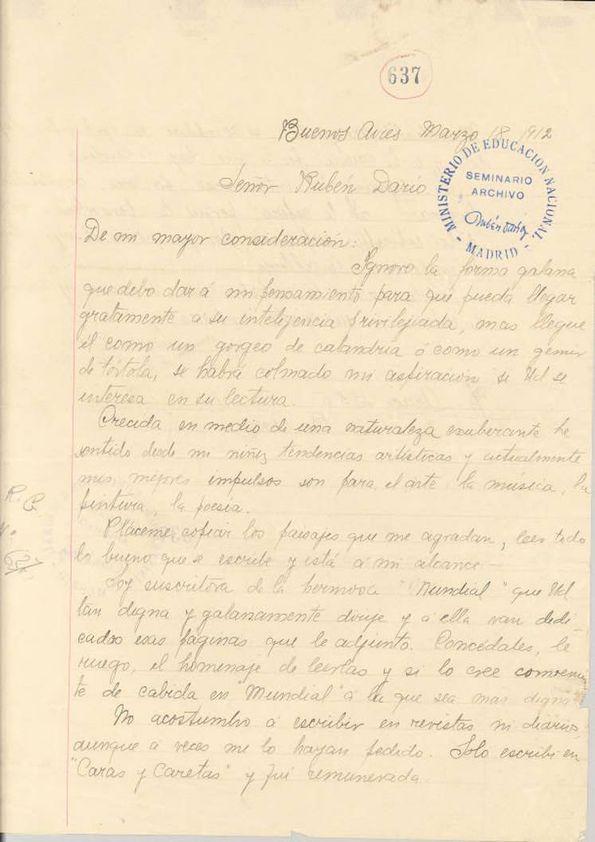 637
Buenos Aires Marzo 18 1912
MINISTERIO DE EDUCACION NACIONAL
SEMINARIO
ARCHIVO
Rubén Darío
- MADRID -
Señor Rubén Darío
De mi mayor consideración:
Ignoro la forma galana
que debo dar á mi pensamiento para que pueda llegar
gratamente á su intelijencia privilejiada, mas llegue
él como un gorgeo de calandria ó como un gemir
de tórtola, se habrá colmado mi aspiración si Ud se
interesa en su lectura.
Crecida en medio de una naturaleza exuberante he
sentido desde mi niñez tendencias artísticas y actualmente
mis mejores impulsos son para el arte la música, la
pintura, la poesia.
Pláceme copiar los paisajes que me agradan, leer todo
lo bueno que se escribe y está á mi alcance—
Soy suscritora de la hermosa "Mundial" que Ud
tan digna y galanamente dirije y á ella van dedi-
cadas esas páginas que le adjunto. Concédales, le
ruego, el homenaje de leerlas y si lo cree convenien
te de cabida en "Mundial" á la que sea mas digna
No acostumbro á escribir en revistas ni diarios
aunque á veces me lo hayan pedido. Solo escribí en
"Caras y Caretas" y fuí remunerada.
R. G.